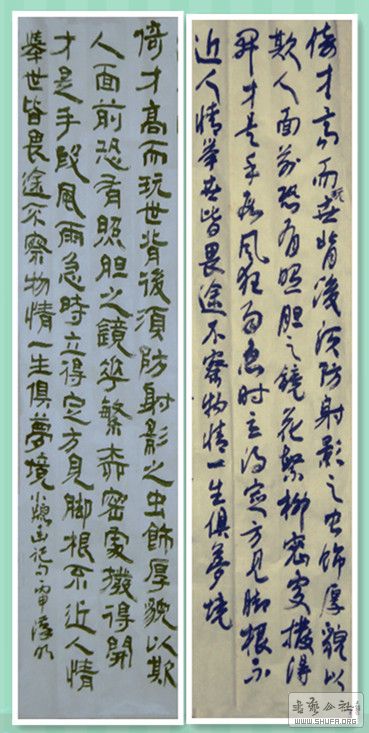 倚才高而玩世背後須防射影之虫飾厚貌以欺
人面前恐有照胆之鏡華繁密處撥得開
才是手段風雨急時立得定方見脚根不近人情
舉世皆畏途不察物情一生俱夢境 小窗幽记句丙申
倚才高而玩世背後须防射影之虫饰厚貌以
欺人面前恐有照胆之鏡花繁柳密处撥得
開才是手段风狂雨急时立得定方见脚根不
近人情举世皆畏途不察物情一生俱夢境
書藝公社
WWW.SHUFA.ORG